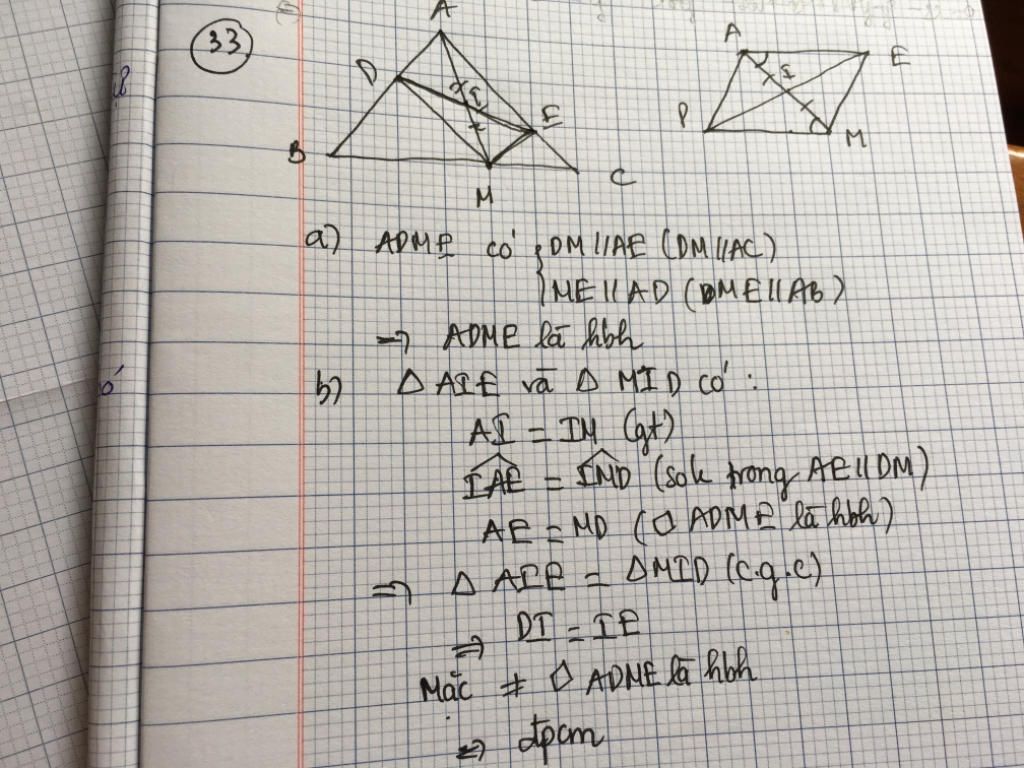 33
A
D
I
E
B
M
C
A
E
I
P
M
a) ADME có { DM//AE (DM//AC)
ME//AD (ME//AB)
=> ADME là hbh
b) △ AIE và △ MID có :
AI = IM (gt)
IAE = IMD (solt trong AE//DM)
AE = MD (▱ ADME là hbh)
=> △ AIE = △MID (c.g.c)
=> DI = IE
Mặc ≠ ▱ ADME là hbh
=> đpcm